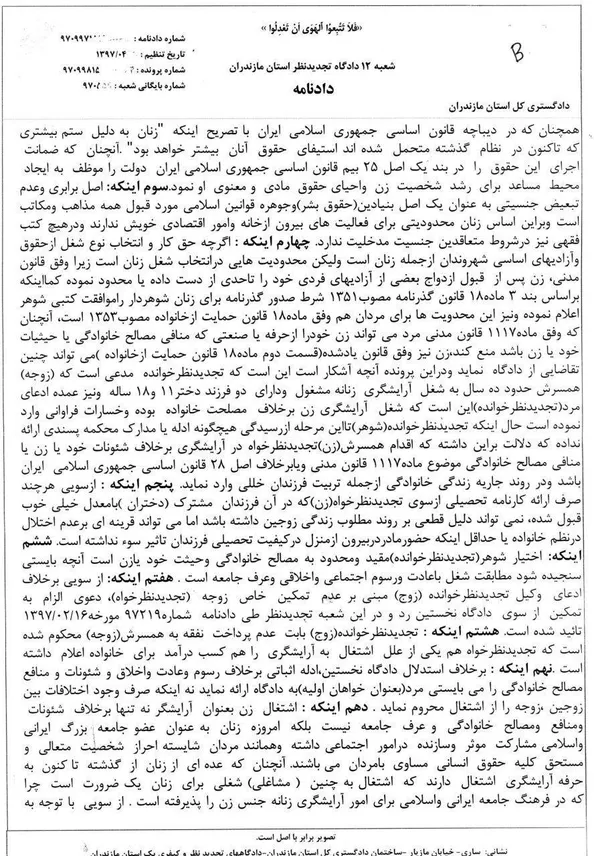 «فَلاَ تَتَّبِعوُا اَلهَوَی اَنْ تَعْدِلُوا»
شماره دادنامه : ۹۷۰۹۹۷۱
تاریخ تنظیم : ۱۳۹۷/۰۴
شماره پرونده : ۹۷۰۹۹۸۱۵
شماره بایگانی شعبه : ۹۷۰
شعبه ۱۲ دادگاه تجدیدنظر استان مازندران
دادنامه
B
دادگستری کل استان مازندران
همچنان که در دیباچه قانون اساسی جمهوری اسلامی ایران با تصریح اینکه "زنان به دلیل ستم بیشتری
که تاکنون در نظام گذشته متحمل شده اند استیفای حقوق آنان بیشتر خواهد بود" .آنچنان که ضمانت
اجرای این حقوق را در بند یک اصل ۲۵ بیم قانون اساسی جمهوری اسلامی ایران دولت را موظف به ایجاد
محیط مساعد برای رشد شخصیت زن واحیای حقوق مادی و معنوی او نمود.سوم اینکه: اصل برابری وعدم
تبعیض جنسیتی به عنوان یک اصل بنیادین(حقوق بشر)وجوهره قوانین اسلامی مورد قبول همه مذاهب ومکاتب
است وبراین اساس زنان محدودیتی برای فعالیت های بیرون ازخانه وامور اقتصادی خویش ندارند ودرهیچ کتب
فقهی نیز درشروط متعاقدین جنسیت مدخلیت ندارد. چهارم اینکه : اگرچه حق کار و انتخاب نوع شغل ازحقوق
وآزادیهای اساسی شهروندان ازجمله زنان است ولیکن محدودیت هایی درانتخاب شغل زنان است زیرا وفق قانون
مدنی، زن پس از قبول ازدواج بعضی از آزادیهای فردی خود را تاحدی از دست داده یا محدود نموده کمااینکه
براساس بند ۳ ماده۱۸ قانون گذرنامه مصوب۱۳۵۱ شرط صدور گذرنامه برای زنان شوهردار راموافقت کتبی شوهر
اعلام نموده ونیز این محدویت ها برای مردان هم وفق ماده۱۸ قانون حمایت ازخانواده مصوب۱۳۵۳ است، آنچنان
که وفق ماده۱۱۱۷ قانون مدنی مرد می تواند زن خودرا ازحرفه یا صنعتی که منافی مصالح خانوادگی یا حیثیات
خود یا زن باشد منع کند،زن نیز وفق قانون یادشده(قسمت دوم ماده۱۸ قانون حمایت ازخانواده )می تواند چنین
تقاضایی از دادگاه نماید ودراین پرونده آنچه آشکار است این است که تجدیدنظرخوانده مدعی است که (زوجه)
همسرش حدود ده سال به شغل آرایشگری زنانه مشغول ودارای دو فرزند دختر۱۱ و۱۸ ساله ونیز عمده ادعای
مرد(تجدیدنظرخوانده)این است که شغل آرایشگری زن برخلاف مصلحت خانواده بوده وخسارات فراوانی وارد
نموده است حال اینکه تجدیدنظرخوانده(شوهر)تااین مرحله ازرسیدگی هیچگونه ادله یا مدارک محکمه پسندی ارائه
نداده که دلالت براین داشته که اقدام همسرش(زن)تجدیدنظرخواه در آرایشگری برخلاف شئونات خود یا زن یا
منافی مصالح خانوادگی موضوع ماده۱۱۱۷ قانون مدنی ویابرخلاف اصل ۲۸ قانون اساسی جمهوری اسلامی ایران
باشد ودر روند جاریه زندگی خانوادگی ازجمله تربیت فرزندان خللی وارد نماید. پنجم اینکه : ازسویی هرچند
صرف ارائه کارنامه تحصیلی ازسوی تجدیدنظرخواه(زن)که در آن فرزندان مشترک (دختران )بامعدل خیلی خوب
قبول شده، نمی تواند دلیل قطعی بر روند مطلوب زندگی زوجین داشته باشد اما می تواند قرینه ای برعدم اختلال
درنظم خانواده یا حداقل اینکه حضورمادردربیرون ازمنزل درکیفیت تحصیلی فرزندان تاثیر سوء نداشته است. ششم
اینکه: اختیار شوهر(تجدیدنظرخوانده)مقید ومحدود به مصالح خانوادگی وحیثت خود یازن است آنچه بایستی
سنجیده شود مطابقت شغل باعادت ورسوم اجتماعی واخلاقی وعرف جامعه است . هفتم اینکه: از سویی برخلاف
ادعای وکیل تجدیدنظرخوانده (زوج) مبنی بر عدم تمکین خاص زوجه (تجدیدنظرخواه)، دعوی الزام به
تمکین از سوی دادگاه نخستین رد و در این شعبه تجدیدنظر طی دادنامه شماره۹۷۲۱۹ مورخه۱۳۹۷/۰۲/۱۶
تائید شده است. هشتم اینکه : تجدیدنظرخوانده(زوج) بابت عدم پرداخت نفقه به همسرش(زوجه) محکوم شده
است که تجدیدنظرخواه هم یکی از علل اشتغال به آرایشگری را هم کسب درآمد برای خانواده اعلام داشته
است .نهم اینکه : برخلاف استدلال دادگاه نخستین،ادله اثباتی برخلاف رسوم وعادت واخلاق و شئونات و منافع
مصالح خانوادگی را می بایستی مرد(بعنوان خواهان اولیه)به دادگاه ارائه نماید نه اینکه صرف وجود اختلافات بین
زوجین ،زوجه را از اشتغال محروم نماید . دهم اینکه : اشتغال زن بعنوان آرایشگر نه تنها برخلاف شئونات
ومنافع ومصالح خانوادگی و عرف جامعه نیست بلکه امروزه زنان به عنوان عضو جامعه بزرگ ایرانی
واسلامی مشارکت موثر وسازنده درامور اجتماعی داشته وهمانند مردان شایسته احراز شخصیت متعالی و
مستحق کلیه حقوق انسانی مساوی بامردان می باشند. آنچنان که عده ای از زنان از گذشته تا کنون به
حرفه آرایشگری اشتغال دارند که اشتغال به چنین ( مشاغلی) شغلی برای زنان یک ضرورت است چرا
که در فرهنگ جامعه ایرانی واسلامی برای امور آرایشگری زنانه جنس زن را پذیرفته است . از سویی با توجه به
تصویر برابر با اصل است.
نشانی: ساری- خیابان مازیار -ساختمان دادگستری کل استان مازندران-دادگاههای تجدید نظر و کیفری یک استان مازندران